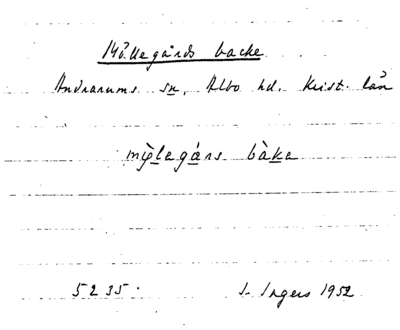 Möllegårds backe
Andrarums sn, Albo hd. Krist. län
mýlegárs bàka
5235. I. Ingers 1952